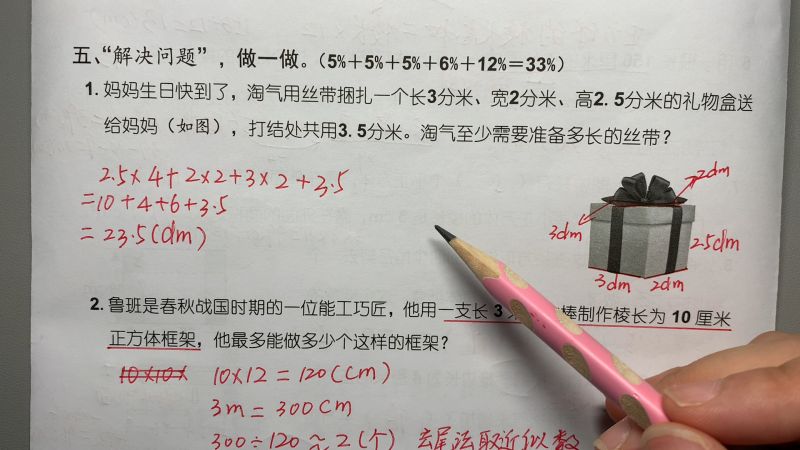 五、“解决问题”，做一做。（5%＋5%＋5%＋6%＋12%＝33%）
1. 妈妈生日快到了，淘气用丝带捆扎一个长3分米、宽2分米、高2.5分米的礼物盒送
给妈妈（如图），打结处共用3.5分米。淘气至少需要准备多长的丝带？
2.5×4+2×2+3×2+3.5
=10+4+6+3.5
=23.5(dm)
2dm
3dm
2.5dm
3dm 2dm
2. 鲁班是春秋战国时期的一位能工巧匠，他用一支长 3 棒制作棱长为 10 厘米
正方体框架，他最多能做多少个这样的框架？
10×10× 10×12=120(cm)
3m=300cm
300÷120≈2(个) 去尾法取近似数